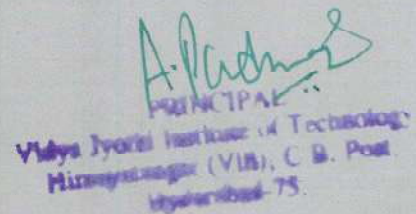 A. Padmaj
PRINCIPAL
Vidya Jyothi Institute of Technology
(Vill), C. B. Post
Hyderabad-75.